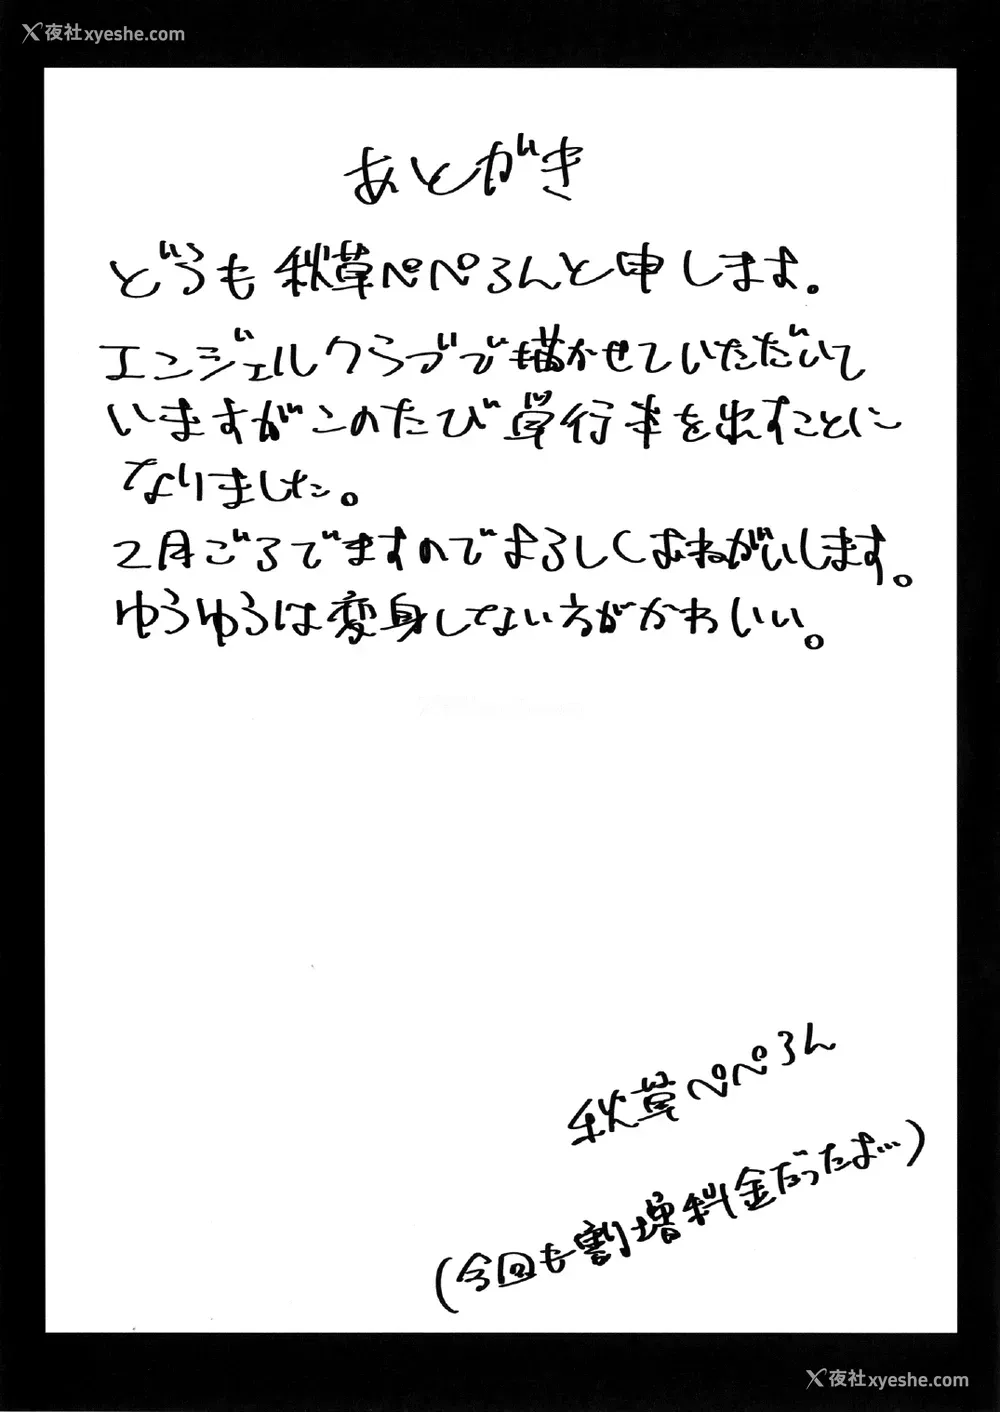 夜社xyeshe.com
あとがき
どうも秋草ぺぺろんと申します。
エンジェルクラブで描かせていただいて
いますがこのたび単行本を出すことに
なりました。
2月ごろでますのでよろしくおねがいします。
ゆうゆうは変身してない方がかわいい。
秋草ぺぺろん
(今回も割増料金だったよ…)
夜社xyeshe.com